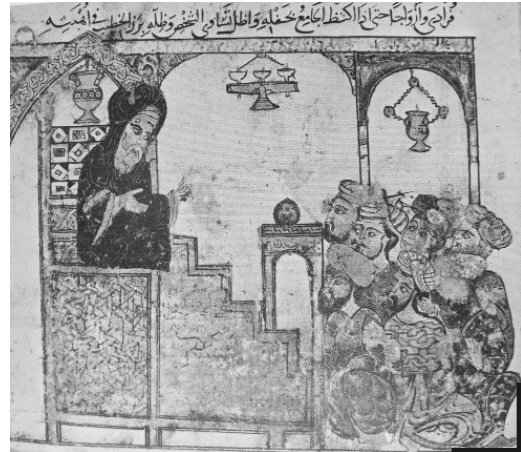 فرادى وأزواجا حتى إذا اكتظ الجامع بحفله وأظل تساوي الشخص وظله برز الخطيب في أهبته